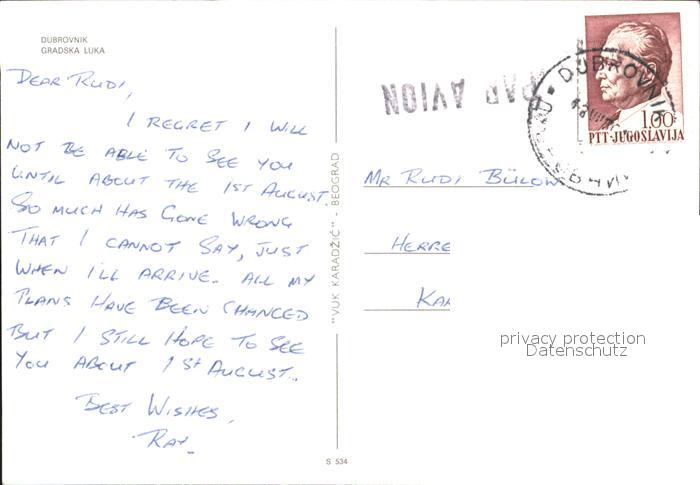 DUBROVNIK
GRADSKA LUKA
DEAR RUDI,
I REGRET I WILL
NOT BE ABLE TO SEE YOU
UNTIL ABOUT THE 1ST AUGUST.
SO MUCH HAS GONE WRONG
THAT I CANNOT SAY, JUST
WHEN I'LL ARRIVE. ALL MY
PLANS HAVE BEEN CHANGED
BUT I STILL HOPE TO SEE
YOU ABOUT 1ST AUGUST..
BEST WISHES,
RAY.
"VUK KARADŽIĆ" - BEOGRAD
S 534
PAR AVION
DUBROVNIK
1.00
PTT·JUGOSLAVIJA
MR RUDI BÜLOW
HERRE
KA
privacy protection
Datenschutz